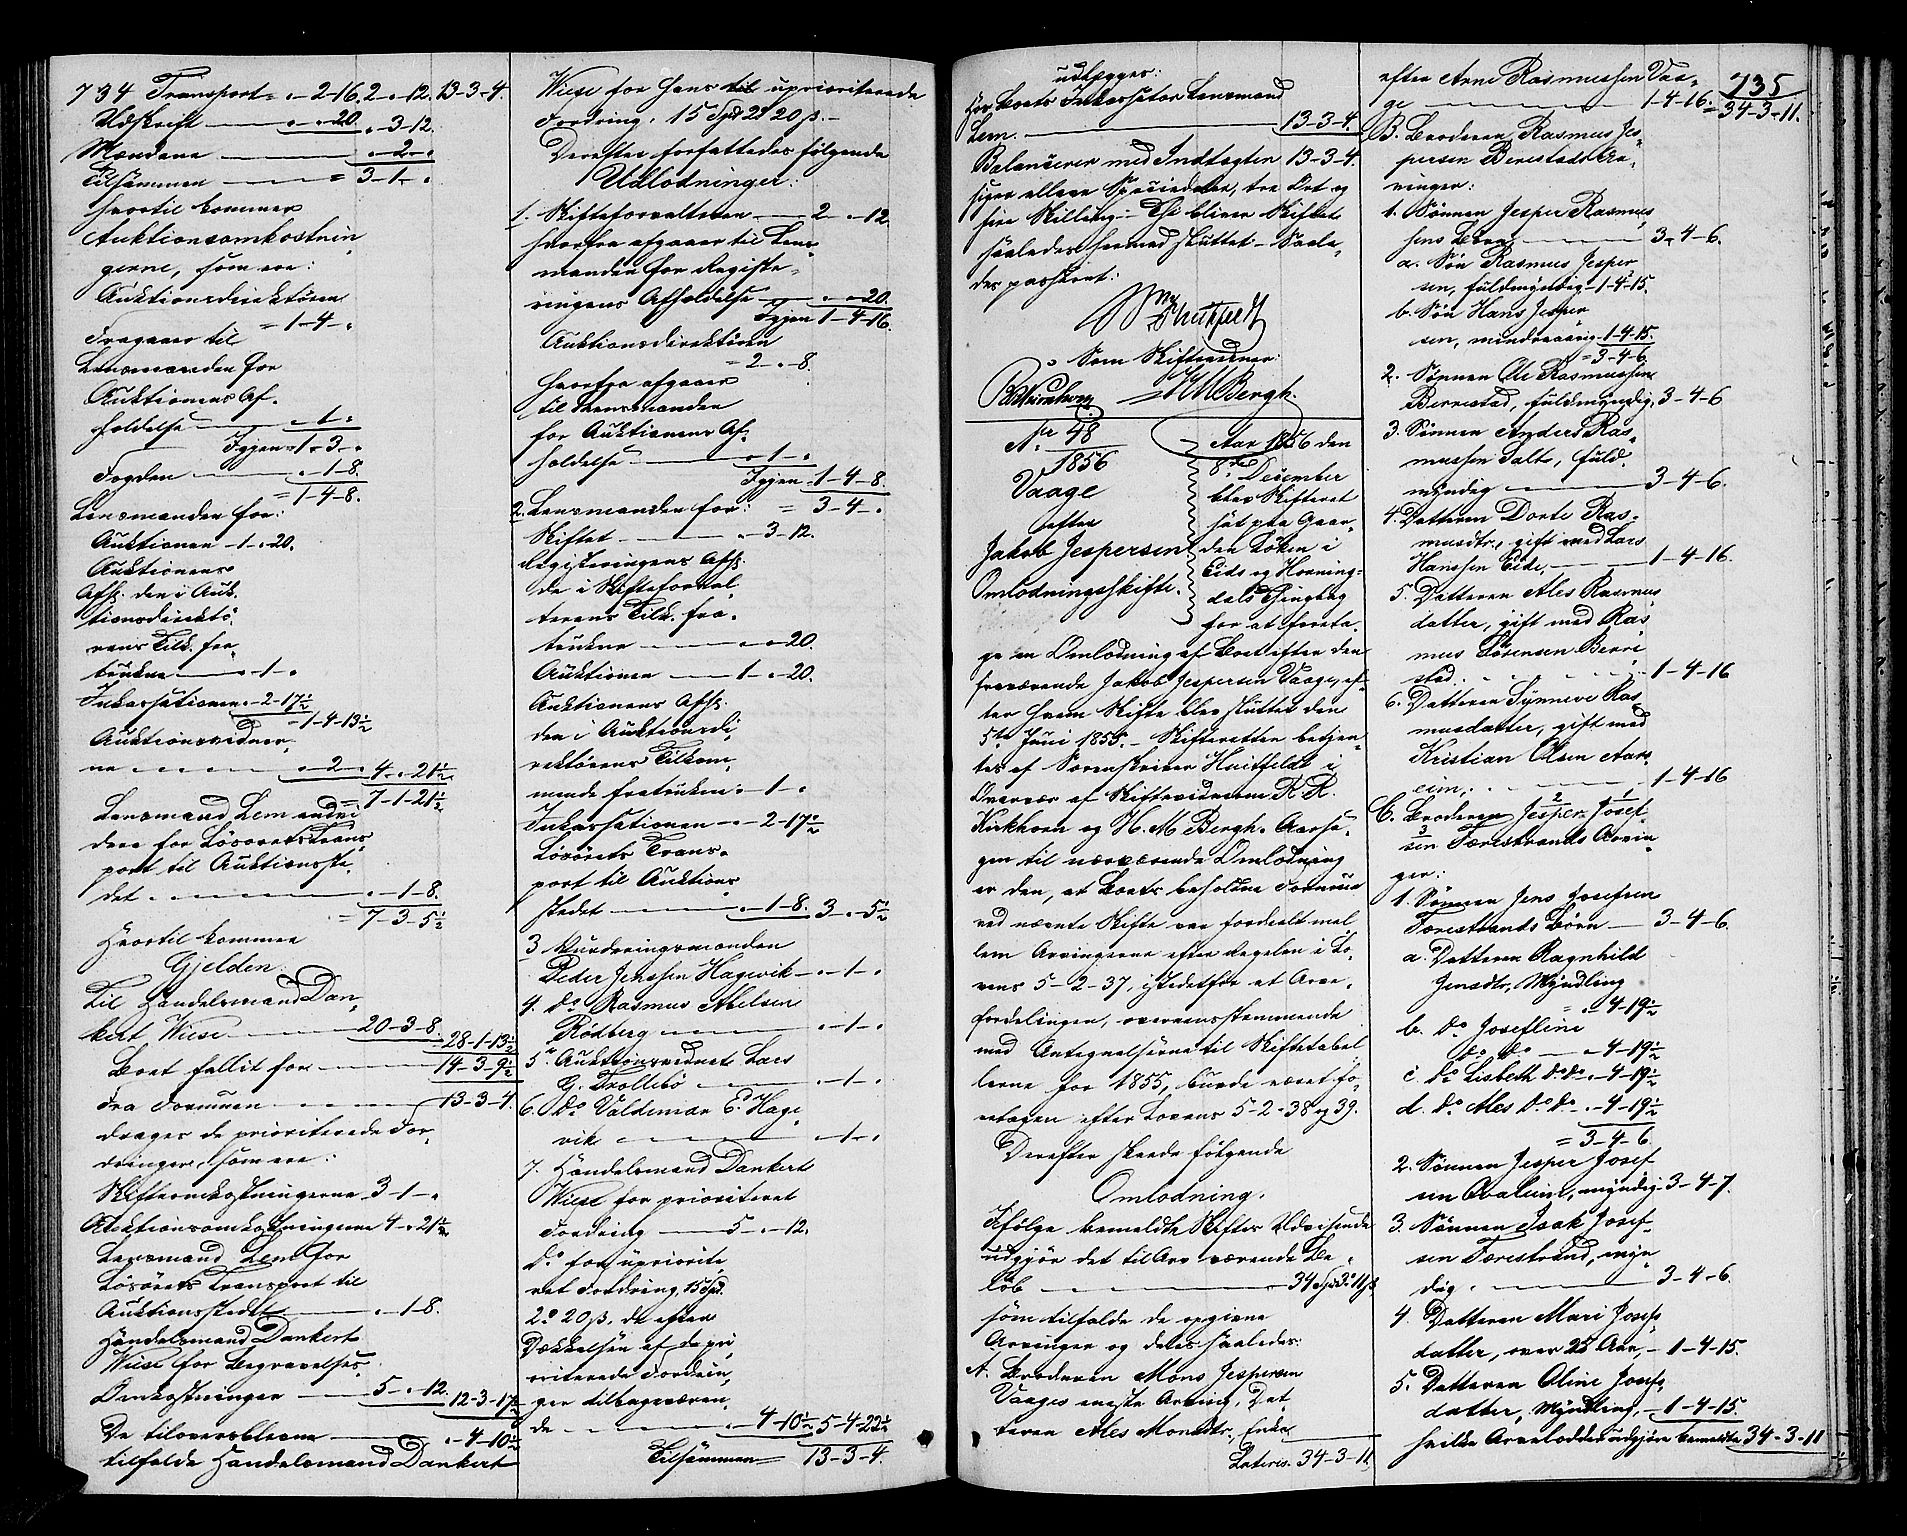 734 Transport = „ - 2-16. 2 „ 12. 13-3-4.
Udskrift — „ „ 20. „ 3-12.
Mændene — „ -2- „
Tilsammen — = 3-1- „
hvortil kommer
Auktionsomkostnin
gerne, som ere:
Auktionsdirektøren
= 1-4- „
Fragaaer til
Lensmanden for
Auktionens Af-
holdelse — „ 1- „
Igjen = 1-3- „
Fogden — „ -1-8.
= 1-4-8.
Lensmanden for:
Auktionen -1- „ 20.
Auktionens
Afh. den i Auk.
tionsdirektø-
rens Tilk. fra-
trukne — 1- „
Inkassationen „ -2-17½
= 1-4-13½
Auktionsvidner-
ne — „ -2- „ 4 „ 21½
= 7-1-21½
Lensmand Lem endvi
dere for Løsørets Trans
port til Auktionsste-
det — „ -1-8.
= 7-3-5½
Hvortil kommer
Gjelden:
Til Handelsmand Dan-
kert Wiese — 20-3-8.
28-1-13½
Boet fallit for — 14-3-9½
Fra Formuen — 13-3-4.
drages de prioriterede For-
dringer, som ere:
Skifteomkostningerne 3-1- „
Auktionsomkostningerne 4 „ 21½
Lensmand Lem for
Løsørets Transport til
Auktionsstedet — „ -1-8.
Handelsmand Dankert
Wiese for Begravelses-
Omkostninger — 5 „ -12. 12-3-17½
De tiloversblevne — „ -4-10½
tilfalde Handelsmand Dankert
Wiese for hans til uprioriterede
Fordring, 15 Spd 2 º 20 ß. —
Derefter forfattedes følgende
Udlodninger:
1. Skifteforvalteren — 2 „ -12.
hvorfra afgaaer til Lens-
manden for Registe-
ringens Afholdelse — „ - „ 20.
Igjen 1-4-16.
Auktionsdirektøren
= 2 „ -8.
hvorfra afgaaer
til Lensmanden
for Auktionens Af-
holdelse — „ 1- „
Igjen 1-4-8.
2. Lensmanden for: = 3-4- „
Skiftet — „ -3-12.
Registeringens Afh.
de i Skifteforval-
terens Tilk. fra-
trukne — „ - „ 20.
Auktionen — 1 „ -20.
Auktionens Afh.
den i Auktionsdi-
rektørens Tilkom-
mende fratrukne „ -1- „
Inkassationen — „ -2-17½
Løsørets Trans-
port til Auktions-
stedet — „ -1-8. 3 „ -5½
3 Vurderingsmanden
Peder Jenssen Hagevik — „ -1- „
4. do Rasmus Abelsen
Rødberg — „ -1- „
5. Auktionsvidnet Lars
G. Trollebø — „ -1- „
6. do Valdemar E. Hage-
vik — „ -1- „
7. Handelsmand Dankert
Wiese for prioriteret
Fordring — 5 „ -12.
do for upriorite-
ret Fordring, 15 Spd.
2 º 20 ß, de efter
Dækkelsen af de pri-
oriterede Fordrin-
ger tilbageværen-
de — „ 4-10½ 5-4-22½
Tilsammen = 13-3-4.
udlægges:
Her Boets Inkassator Lensmand
Lem. — 13-3-4.
Balancerer med Indtægten 13-3-4.
siger elleve Speciedaler, tre Ort og
fire Skilling. — Thi bliver Skiftet
saaledes hermed sluttet. — Saale-
des passeret:
Huitfeldt
Som Skiftevidner:
R Kirkhorn H M Bergh.
No 48
1856
Vaage
efter
Jakob Jespersen
Omlodningsskifte.
Aar 1856 den
8de December
blev Skifteret
sat paa Gaar-
den Løken i
Eids og Horning-
dals Thinglag
for at foreta-
ge en Omlodning af Boet efter den
fraværende Jakob Jespersen Vaage, ef-
ter hvem Skifte blev sluttet den
5te Juni 1855. — Skifteretten betjen-
tes af Sorenskriver Huitfeldt i
Overvær af Skiftevidnerne R. R.
Kirkhorn og H. M Bergh. Aarsa-
gen til nærværende Omlodning
er den, at Boets beholdne Formue
ved nævnte Skifte var fordeelt mel-
lem Arvingerne efter Regelen i Lo-
vens 5-2-37, istedetfor at Arve-
fordelingen, overensstemmende
med Antegnelserne til Skiftetabel-
lerne for 1855, burde været fo-
retagen efter Lovens 5-2-38 og 39.
Derefter skeede følgende
Omlodning.
Ifølge bemeldte Skiftes Udvisende
udgjør det til Arv værende Be-
løb — 34 Spd 3 º 11 ß
som tilfalde de opgivne
Arvinger og deles saaledes:
A. Broderen Mons Jespersen
Vaages eneste Arving, Dat-
teren Ales Monsdtr., Enke
Lateris. 34-3-11
735
efter Arne Rasmussen Vaa-
ge — 1-4-16. = 34-3-11.
B. Broderen Rasmus Jes-
persen Berrestads Ar-
vinger:
1. Sønnen Jesper Rasmus-
sens Børn — 3-4-6.
a. Søn Rasmus Jesper
sen, fuldmyndig -1-4-15.
b. Søn Hans Jesper
sen, mindreaarig -1-4-15.
= 3-4-6.
2. Sønnen Ole Rasmussen
Berrestad, fuldmyndig, 3-4-6
3. Sønnen Anders Ras-
mussen Salte, fuld-
myndig — 3-4-6.
4. Datteren Dorte Ras-
musdtr., gift med Lars
Hanssen Eide, — 1-4-16.
5. Datteren Ales Rasmus
datter, gift med Ras-
mus Sørensen Berre
stad. — 1-4-16
6. Datteren Synneve Ras-
musdatter, gift med
Kristian Olsen Aars-
eim, — 1-4-16
C. Broderen Jesper Josef
sen Tærestrands Arvin-
ger:
1. Sønnen Jens Josefsen
Tærestrands Børn — 3-4-6.
a. Datteren Ragnhild
Jensdtr., Myndling
= „ -4-19½
b. do Josefline
do do — „ -4-19½
c. do Lisbeth do do „ -4-19½
d. do Ales do do „ -4-19½
= 3-4-6
2. Sønnen Jesper Josef
sen, myndig 3-4-7.
3. Sønnen Isak Josef-
sen Tærestrand, myn-
dig. — 3-4-6.
4. Datteren Mari Josefs-
datter, over 25 Aar, — 1-4-15.
5. Datteren Oline Josefs-
datter, Myndling, — 1-4-15.
hvilke Arvelodder udgjøre bemeldte 34-3-11